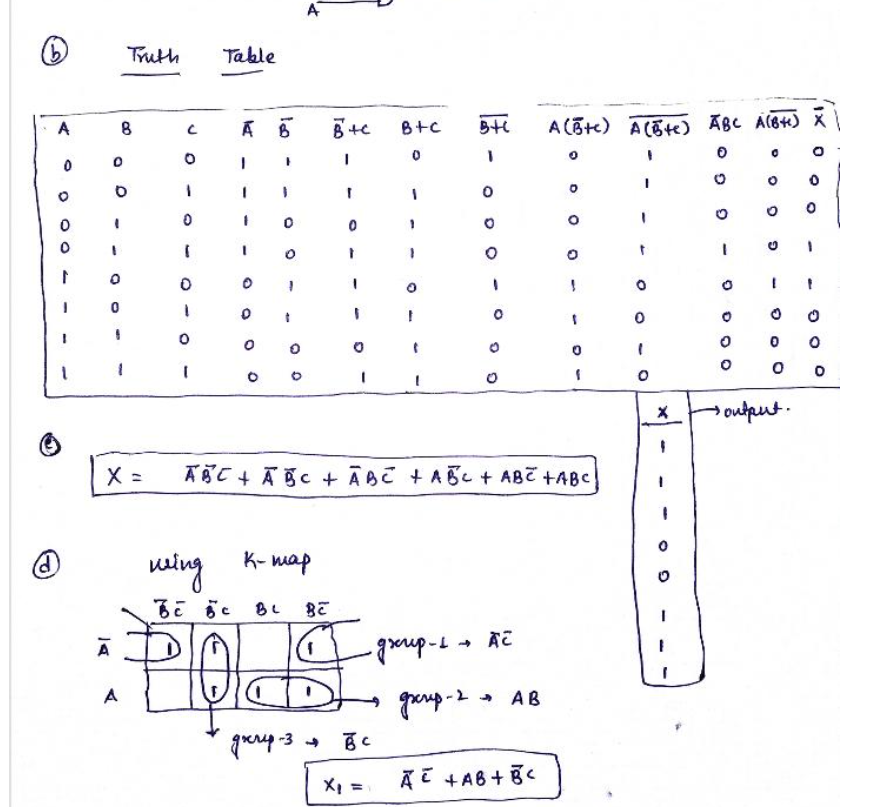 A
(b) Truth Table
A B C A̅ B̅ B̅+C B+C \overline{B+C} A(B̅+C) \overline{A(B̅+C)} A̅BC A(\overline{B+C}) X̅
0 0 0 1 1 1 0 1 0 1 0 0 0
0 0 1 1 1 1 1 0 0 1 0 0 0
0 1 0 1 0 0 1 0 0 1 0 0 0
0 1 1 1 0 1 1 0 0 1 1 0 1
1 0 0 0 1 1 0 1 1 0 0 1 1
1 0 1 0 1 1 1 0 1 0 0 0 0
1 1 0 0 0 0 1 0 0 1 0 0 0
1 1 1 0 0 1 1 0 1 0 0 0 0
X → output.
1
1
1
0
0
1
1
1
(c) X = A̅B̅C̅ + A̅B̅C + A̅BC̅ + AB̅C + ABC̅ + ABC
(d) using K-map
B̅C̅ B̅C BC BC̅
A̅ 1 1 1 group-1 → A̅C̅
A 1 1 1 group-2 → AB
group-3 → B̅C
X₁ = A̅C̅ + AB + B̅C